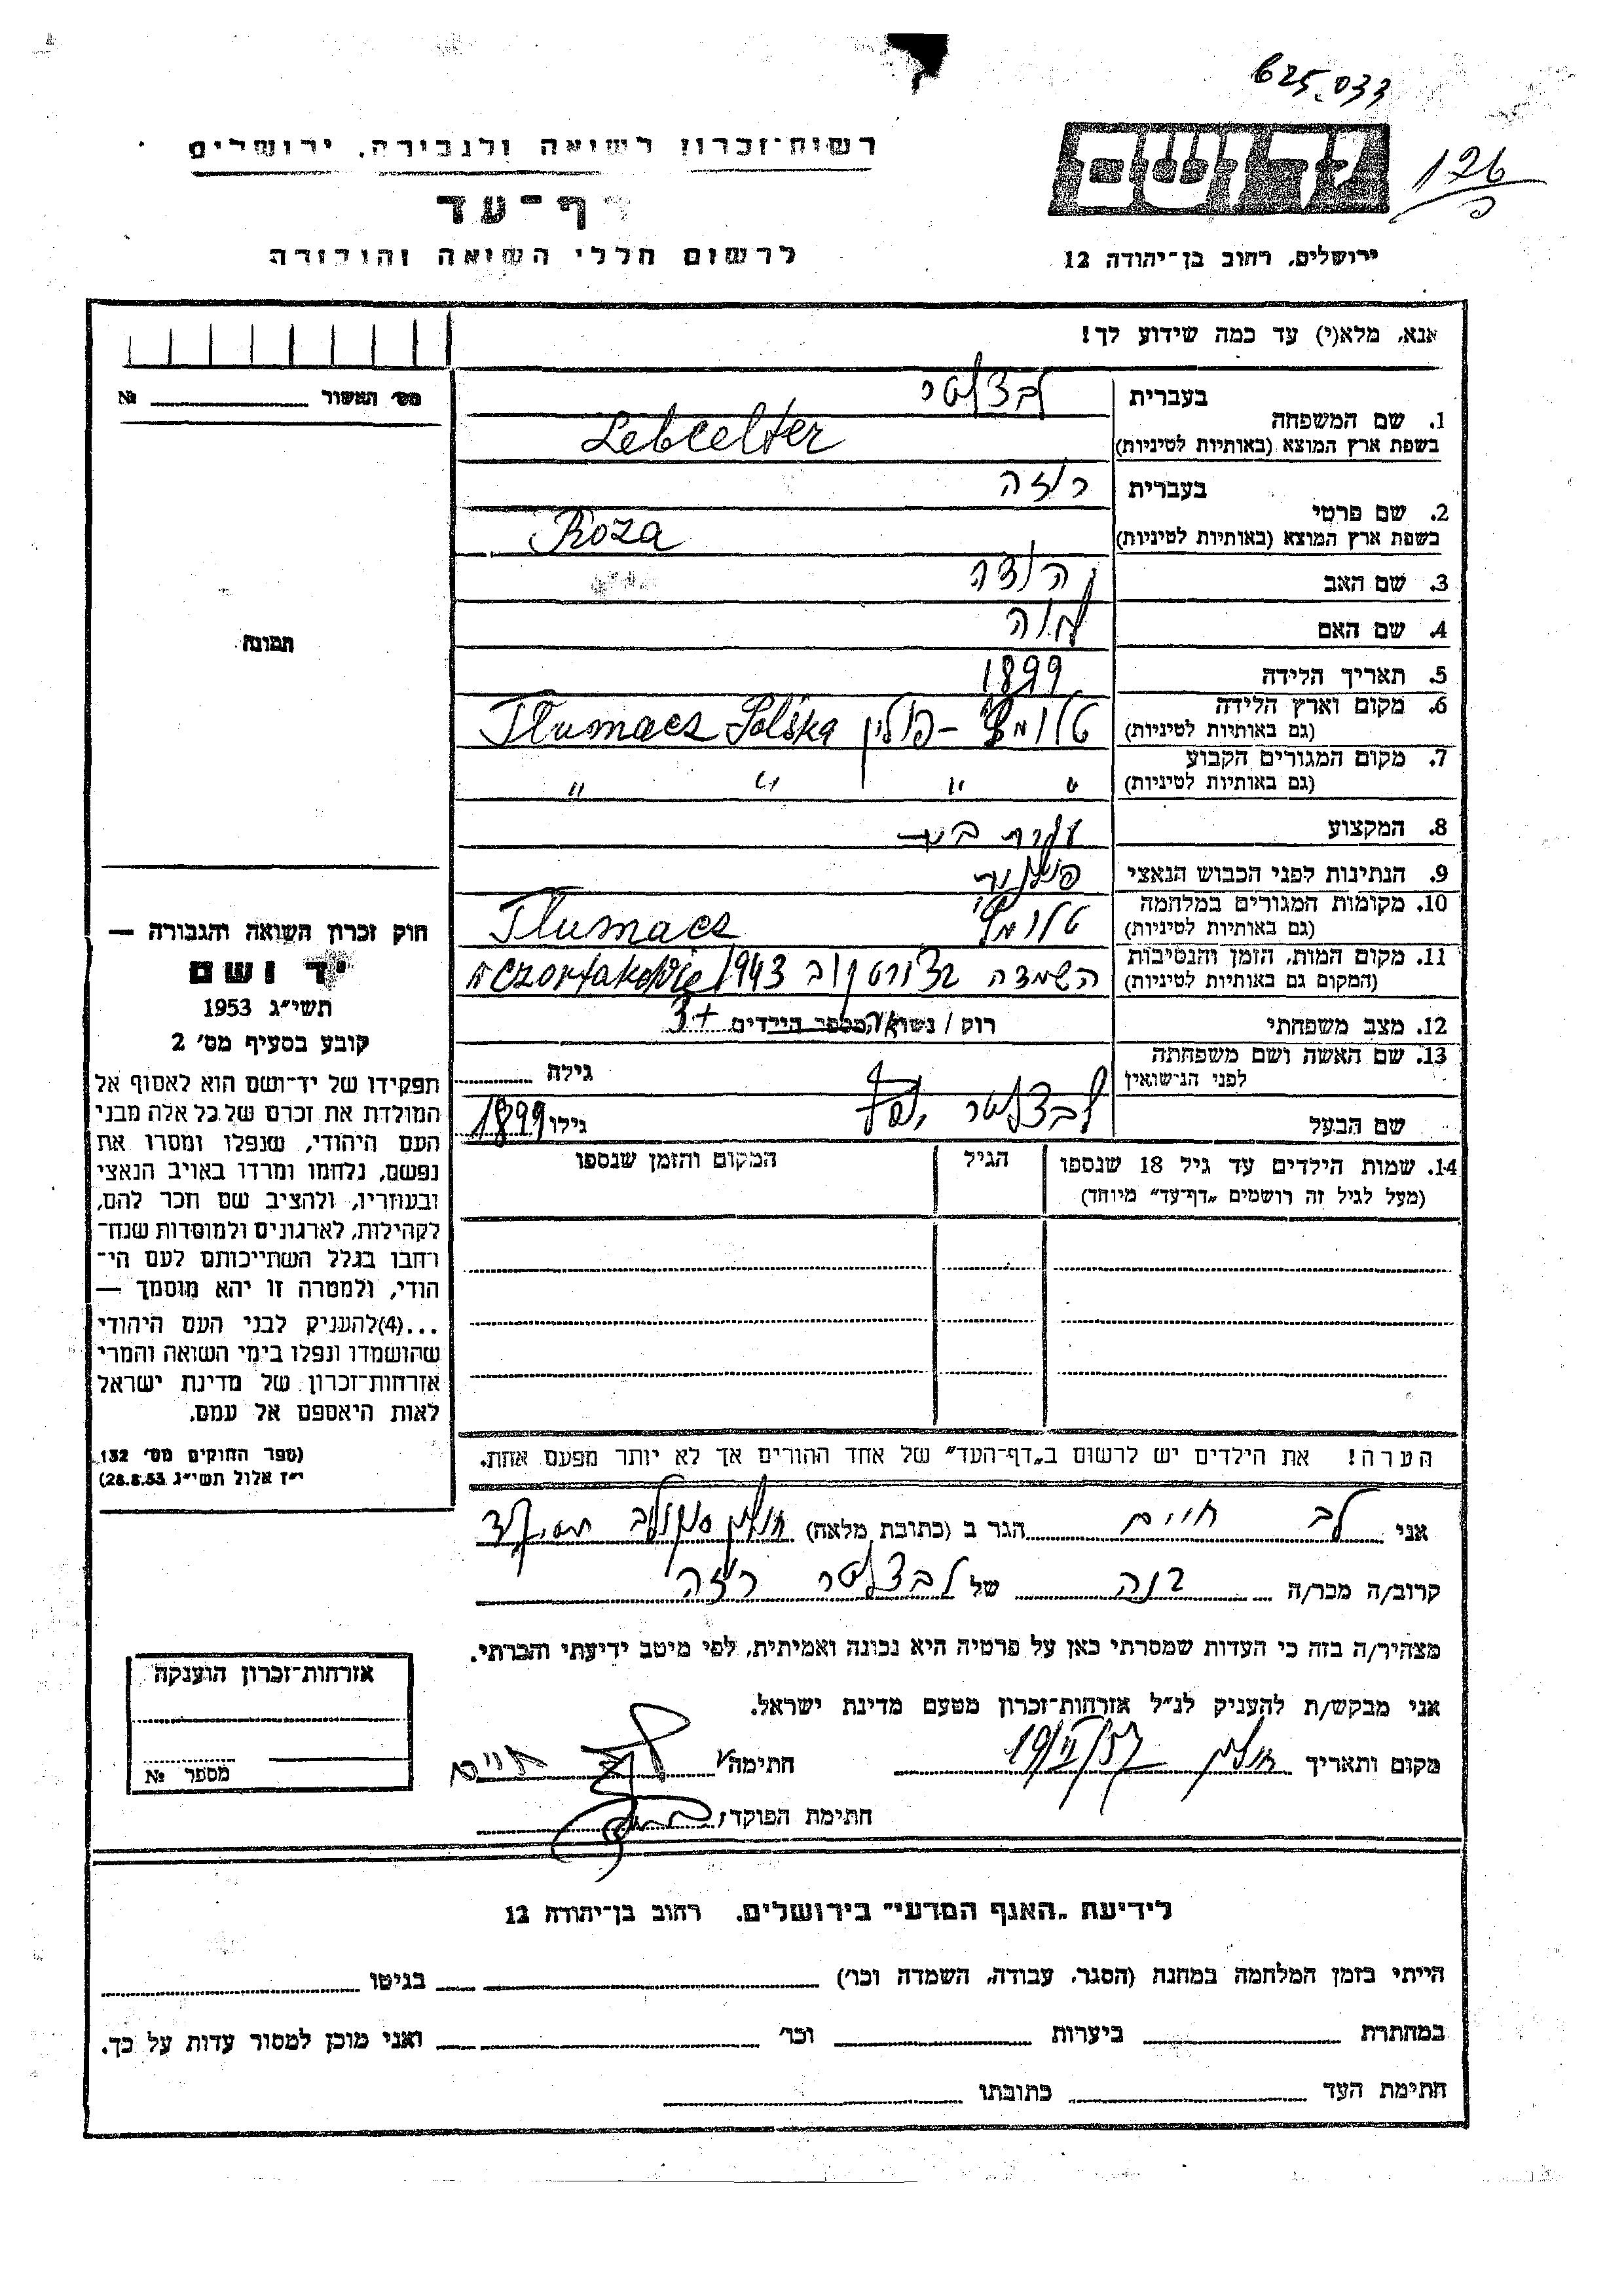 625.033
רשות־זכרון לשואה ולגבורה, ירושלים
126
דף־עד
לרשום חללי השואה והגבורה
ירושלים, רחוב בן־יהודה 12
אנא, מלא(י) עד כמה שידוע לך!
מס׳ האשור №
בעברית
1. שם המשפחה
Lebcelter
בשפת ארץ המוצא (באותיות לטיניות)
בעברית רוזה
2. שם פרטי
Roza
בשפת ארץ המוצא (באותיות לטיניות)
3. שם האב
4. שם האם
תמונה
5. תאריך הלידה 1899
6. מקום וארץ הלידה
(גם באותיות לטיניות) פולין – Tlumacs Polska
7. מקום המגורים הקבוע
(גם באותיות לטיניות) " " " "
8. המקצוע עקרת בית
9. הנתינות לפני הכבוש הנאצי פולנית
10. מקומות המגורים במלחמה
(גם באותיות לטיניות) Tlumacs
11. מקום המות, הזמן והנסיבות
(המקום גם באותיות לטיניות) השמדה 1943
12. מצב משפחתי רוק / נשוא מספר הילדים 3+
13. שם האשה ושם משפחתה
לפני הנישואין גילה
שם הבעל גילו 1899
14. שמות הילדים עד גיל 18 שנספו הגיל המקום והזמן שנספו
(מעל לגיל זה רושמים „דף־עד״ מיוחד)
הערה! את הילדים יש לרשום ב„דף־העד״ של אחד ההורים אך לא יותר מפעם אחת.
חוק זכרון השואה והגבורה —
יד ושם
תשי״ג 1953
קובע בסעיף מס׳ 2
תפקידו של יד־ושם הוא לאסוף אל
המולדת את זכרם של כל אלה מבני
העם היהודי, שנפלו ומסרו את
נפשם, נלחמו ומרדו באויב הנאצי
ובעוזריו, ולהציב שם וזכר להם,
לקהילות, לארגונים ולמוסדות שנח־
רחבו בגלל השתייכותם לעם הי־
הודי, ולמטרה זו יהא מוסמך —
...(4)להעניק לבני העם היהודי
שהושמדו ונפלו בימי השואה והמרי
אזרחות־זכרון של מדינת ישראל
לאות היאספם אל עמם.
(ספר החוקים מס׳ 132
י״ז אלול תשי״ג 28.8.53)
אני לב חיים הגר ב (כתובת מלאה) חולון
קרוב/ה מכר/ה בנה של לבצלטר רוזה
מצהיר/ה בזה כי העדות שמסרתי כאן על פרטיה היא נכונה ואמיתית, לפי מיטב ידיעתי והכרתי.
אני מבקש/ת להעניק לנ״ל אזרחות־זכרון מטעם מדינת ישראל.
מקום ותאריך חולון 19/II/57 חתימה לב חיים
חתימת הפוקד
אזרחות־זכרון הוענקה
מספר №
לידיעת „האגף המדעי״ בירושלים, רחוב בן־יהודה 12
הייתי בזמן המלחמה במחנה (הסגר, עבודה, השמדה וכו׳) בגיטו
במחתרת ביערות וכו׳ ואני מוכן למסור עדות על כך.
חתימת העד כתובתו